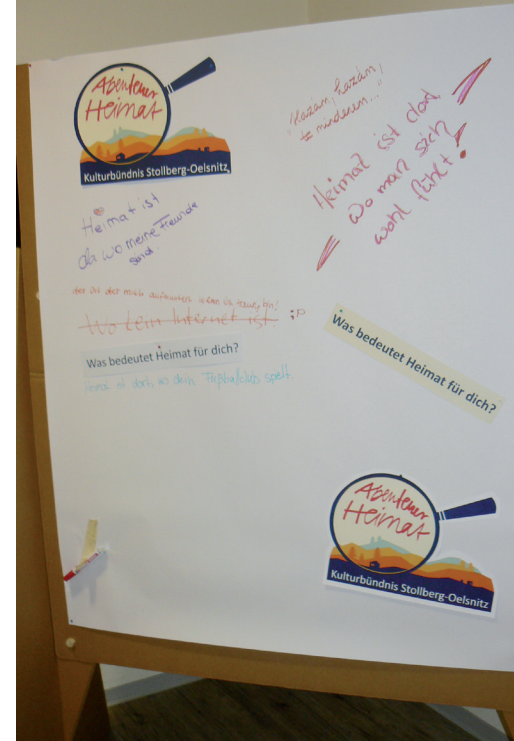 Abenteuer
Heimat
Kulturbündnis Stollberg-Oelsnitz
"Hazám, hazám,
mindenem..."
Heimat ist dort
wo man sich
wohl fühlt!
Heimat ist
da wo meine Freunde
sind
der Ort der mich
Wo kein Internet ist ;D
Was bedeutet Heimat für dich?
Heimat ist dort, wo dein spielt.
Was bedeutet Heimat für dich?
Abenteuer
Heimat
Kulturbündnis Stollberg-Oelsnitz